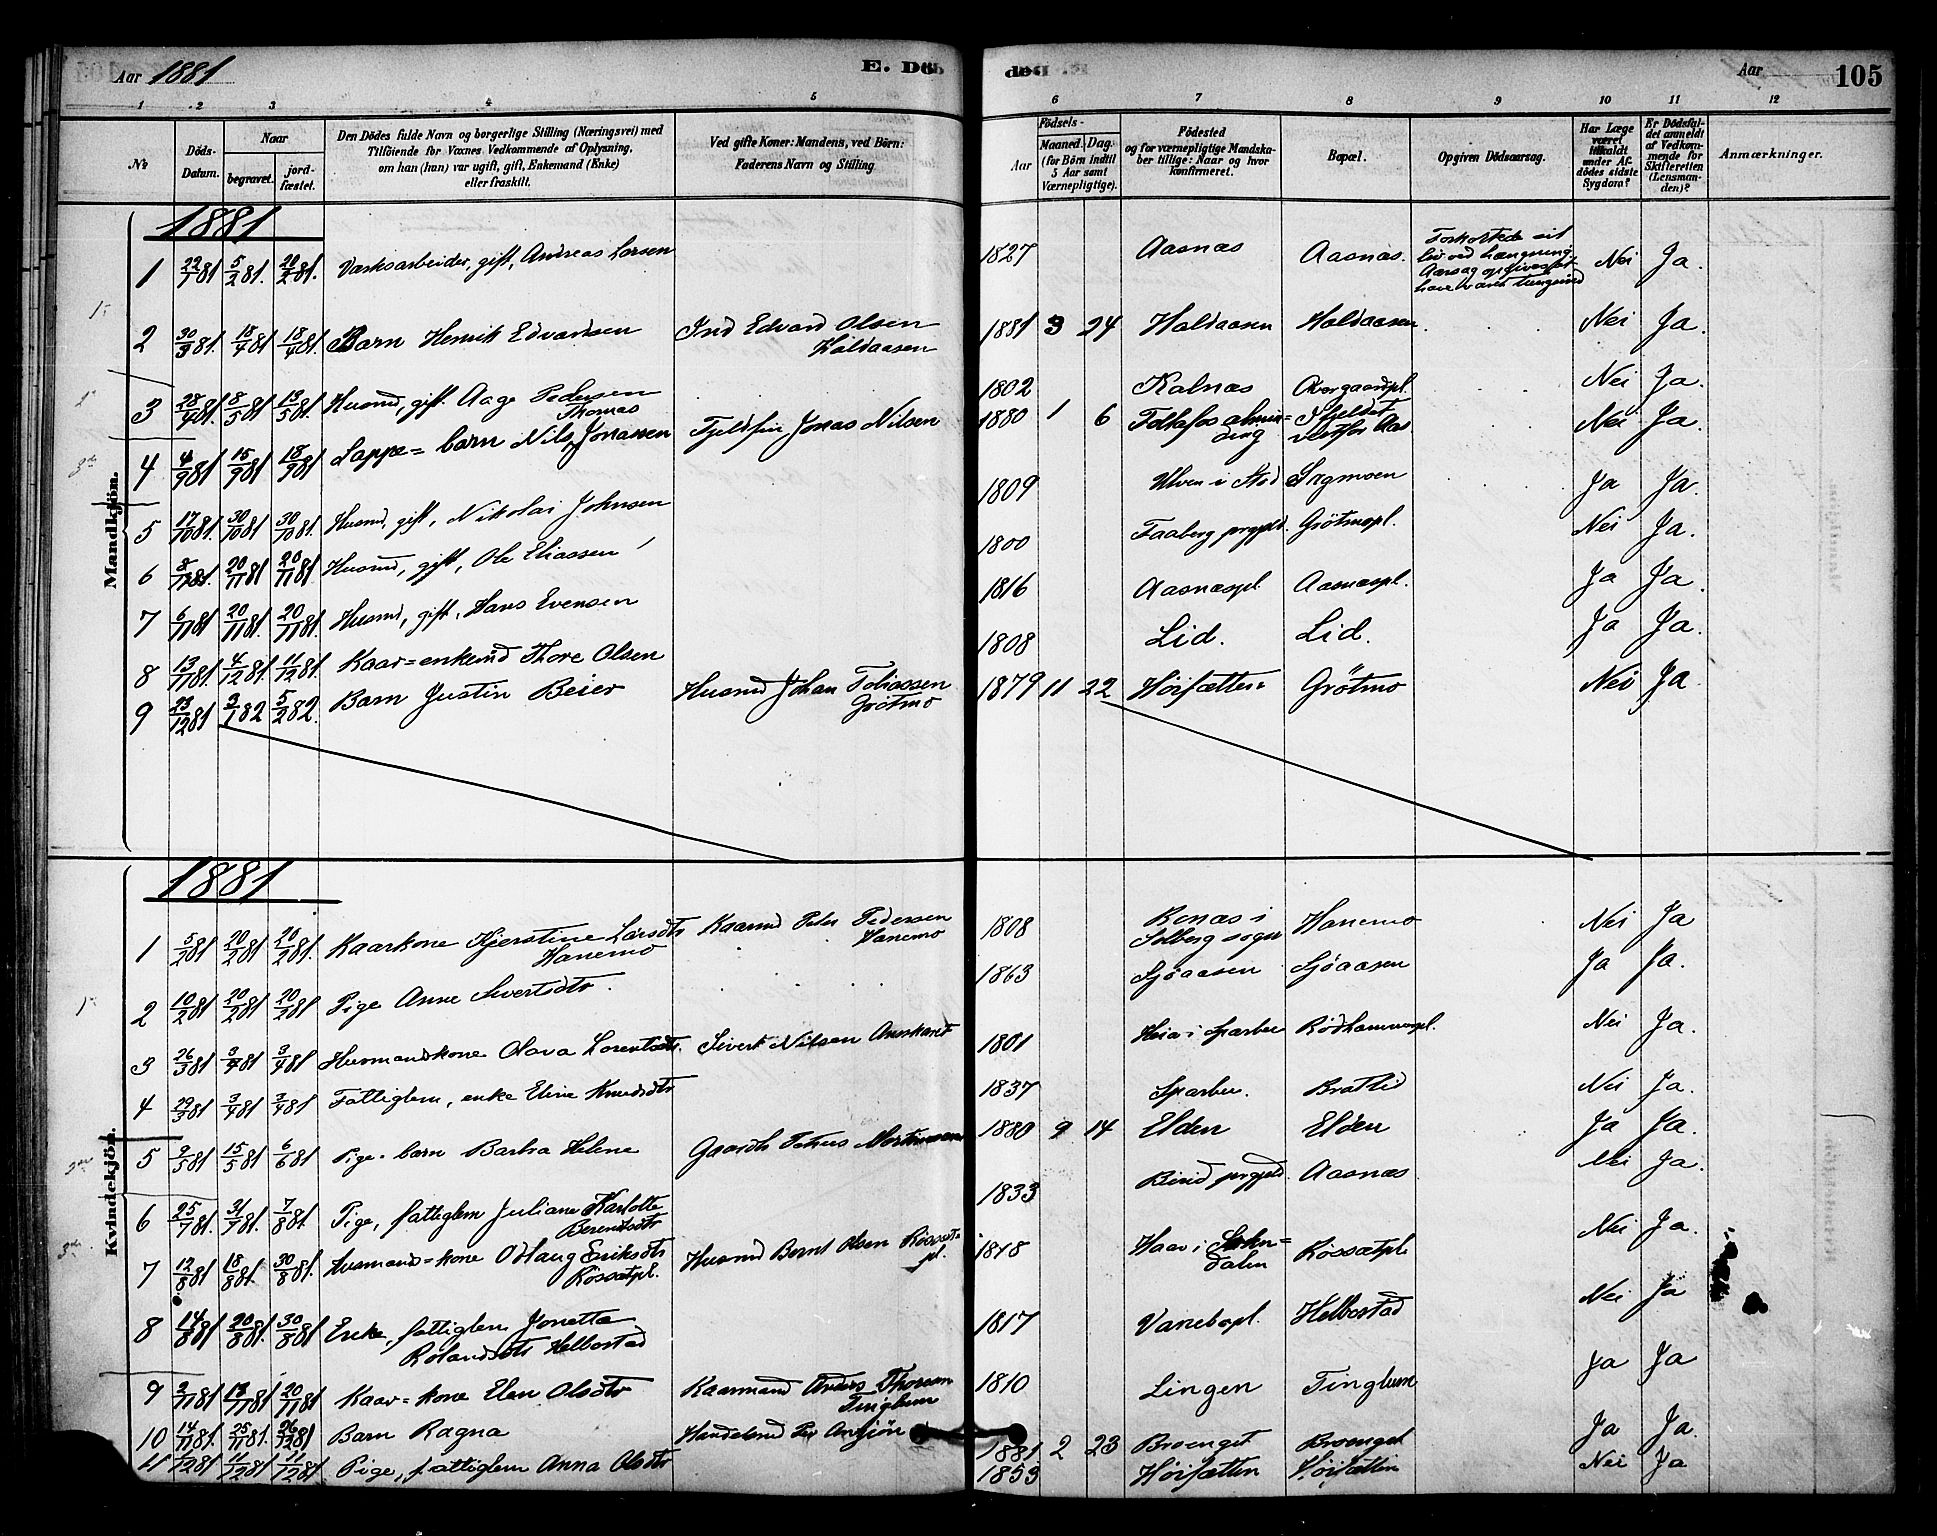 Aar 1881 E. Död
Aar 105
1 2 3 4 5 6 7 8 9 10 11 12
No.
Döds-Datum.
Naar
begravet.
jordfæstet.
Den Dödes fulde Navn og borgerlige Stilling (Næringsvei) med
Tilföiende for Voxnes Vedkommende af Oplysning,
om han (hun) var ugift, gift, Enkemand (Enke)
eller fraskilt.
Ved gifte Koner: Mandens, ved Börn:
Faderens Navn og Stilling.
Födsels-
Aar
Maaned. Dag.
(for Börn indtil
5 Aar samt
Værnepligtige).
Födested
og for værnepligtige Mandska-
ber tillige: Naar og hvor
konfirmeret.
Bopæl.
Opgiven Dödsaarsag.
Har Læge
været
tilkaldt
under Af-
dödes sidste
Sygdom?
Er Dödsfal-
det anmeldt
af Vedkom-
mende for
Skifteretten
(Lensman-
den)?
Anmærkninger.
Mandkjön.
1881
1 22/1 81 5/2 81. 20/2 81. Værksarbeider, gift, Andreas Larsen 1827 Aasnæs Aasnæs. Forkortede sit
liv ved hængning.
Aarsag opgives at
have været tungsind Nei Ja.
2 30/3 81. 18/4 81 18/4 81. Barn Henrik Edvardsen Ind Edvard Olsen
Haldaasen 1881 3 24 Haldaasen Haldaasen Nei Ja.
3 28/4 81. 8/5 81 13/5 81. Husmd, gift. Aage Pedersen 1802 Kalnæs Overgaardpl. Nei Ja.
4 4/9 81 15/9 81 18/9 81 Lappe=barn Nils Thomas Jonassen Fjeldfin Jonas Nilsen 1880 1 6 Foltafos almin=
ding Fjeldet
vestfor Aas Nei Ja.
5 17/10 81. 30/10 81 30/10 81. Husmd, gift, Nikolai Johnsen 1809 Ulven i Stod Sagmoen Ja Ja.
6 8/11 81. 20/11 81 20/11 81. Husmd, gift, Ole Eliassen 1800 Faaberg prgjeld. Grötmopl. Nei Ja.
7 6/11 81 20/11 81. 20/11 81. Husmd, gift, Hans Evensen 1816 Aasnæspl. Aasnæspl. Ja Ja.
8 13/11 81. 4/12 81 11/12 81. Kaar=enkemd Thore Olsen 1808 Lid. Lid. Ja Ja.
9 23/12 81 3/1 82 5/2 82. Barn Justin Beier Husmd Johan Tobiassen
Grötmo 1879 11 22 Höisætter Grötmo Nei Ja
Kvindekjön.
1881
1 5/2 81 20/2 81 20/2 81. Kaarkone Kjerstine Larsdtr
Hanemo Kaarmd Peter Pedersen
Hanemo 1808 Benæs i
Solberg sogn Hanemo Nei Ja
2 10/2 81 20/2 81 20/2 81 Pige Anne Sivertsdtr. 1863 Sjöaasen Sjöaasen Ja Ja.
3 26/3 81 3/4 81 3/4 81 Husmandkone Olava Lorentsdtr. Sivert Nilsen 1801 Heia i Sparbu Rödhammerpl. Nei Ja.
4 29/3 81 3/4 81 3/4 81 Fattiglem, enke Eline Knudsdtr 1837 Sparbu. Bratlid Nei Ja.
5 2/5 81 15/5 81 6/6 81 Pige-barn Barbra Helene Gaardb. Petrus 1880 9 14 Elden Elden Ja Ja.
6 25/7 81. 31/7 81. 7/8 81. Pige, fattiglem Juliane Karlotte
Berentsdtr 1833 Birid prgjeld Aasnæs Nei Ja.
7 12/8 81 18/8 81. 30/8 81. Husmand=kone Odlaug Eriksdtr
Rössætpl. Husmd Bernt Olsen Rössæt=
pl. 1818 Haar i Sokn=
dalen Rössætpl. Nei Ja.
8 14/8 81 20/8 81. 30/8 81 Enke, fattiglem Jonetta
Rolandsdtr Helbostad 1817 Vanebopl. Helbostad Nei Ja
9 2/11 81 13/11 81. 20/11 81 Kaar=kone Elen Olsdtr Kaarmand Anders Thorsen
Tinglum 1810 Lingen Tinglum Ja Ja
10 14/11 81. 25/11 81. 26/12 81 Barn Ragna Handelsmd 1881 2 23 Broenget Broenget Ja Ja.
11 11/12 81 11/12 81 Pige, fattiglem Anna Olsdtr 1853 Höisætten Höisætten Nei Ja